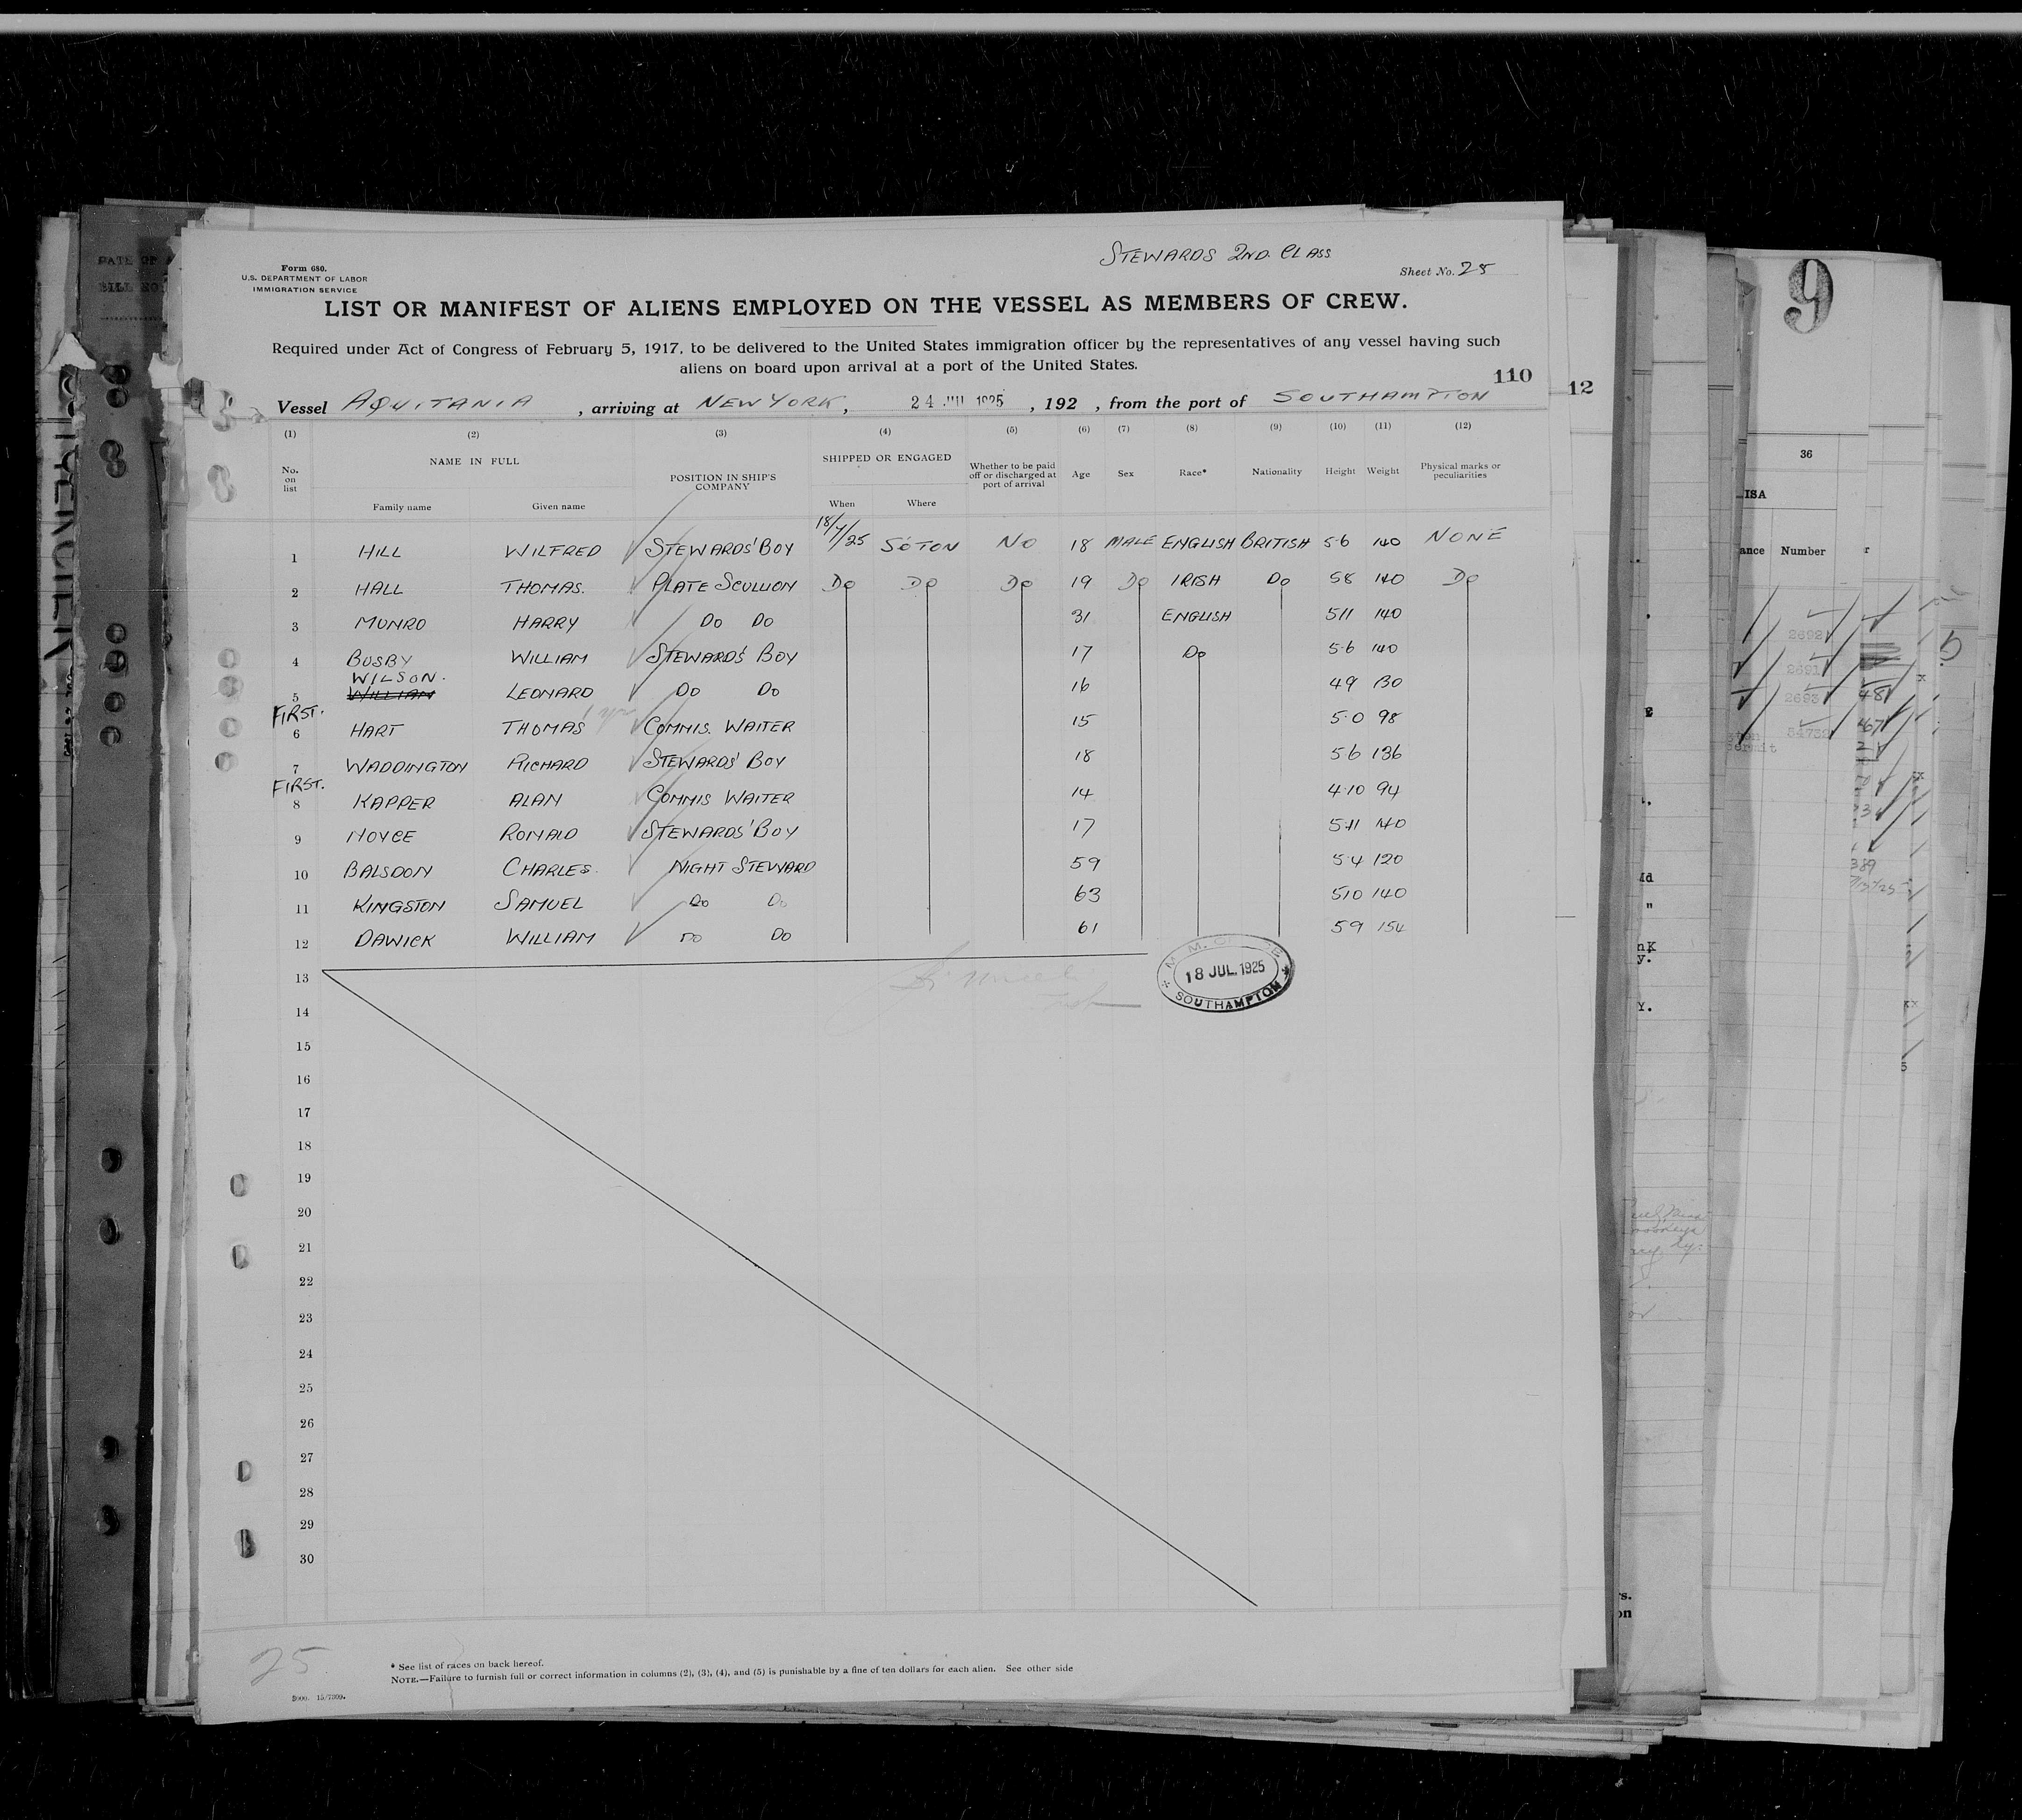 STEWARDS 2ND. CLASS
Form 680.
U.S. DEPARTMENT OF LABOR
IMMIGRATION SERVICE
Sheet No. 25
LIST OR MANIFEST OF ALIENS EMPLOYED ON THE VESSEL AS MEMBERS OF CREW.
Required under Act of Congress of February 5, 1917, to be delivered to the United States immigration officer by the representatives of any vessel having such
aliens on board upon arrival at a port of the United States.
110
12
Vessel AQUITANIA, arriving at NEW YORK, 24 JUL 1925, 192 , from the port of SOUTHAMPTON
(1) (2) (3) (4) (5) (6) (7) (8) (9) (10) (11) (12)
No. on list NAME IN FULL POSITION IN SHIP'S COMPANY SHIPPED OR ENGAGED Whether to be paid off or discharged at port of arrival Age Sex Race* Nationality Height Weight Physical marks or peculiarities
Family name Given name When Where
1 HILL WILFRED STEWARDS' BOY 18/7/25 SO'TON NO 18 MALE ENGLISH BRITISH 5·6 140 NONE
2 HALL THOMAS. PLATE SCULLION DO DO DO 19 DO IRISH DO 58 140 DO
3 MUNRO HARRY DO DO 31 ENGLISH 511 140
4 BUSBY WILLIAM STEWARDS' BOY 17 DO 5·6 140
WILSON.
5 WILLIAM LEONARD DO DO 16 49 130
FIRST.
6 HART THOMAS COMMIS. WAITER 15 5·0 98
7 WADDINGTON RICHARD STEWARDS' BOY 18 56 136
FIRST.
8 KAPPER ALAN COMMIS WAITER 14 4·10 94
9 NOYCE RONALD STEWARDS' BOY 17 5·11 140
10 BALSDON CHARLES. NIGHT STEWARD 59 5·4 120
11 KINGSTON SAMUEL DO DO 63 510 140
12 DAWICK WILLIAM DO DO 61 59 154
18 JUL. 1925
SOUTHAMPTON
13
14
15
16
17
18
19
20
21
22
23
24
25
26
27
28
29
30
25
* See list of races on back hereof.
NOTE.—Failure to furnish full or correct information in columns (2), (3), (4), and (5) is punishable by a fine of ten dollars for each alien. See other side
9
36
ISA
Number